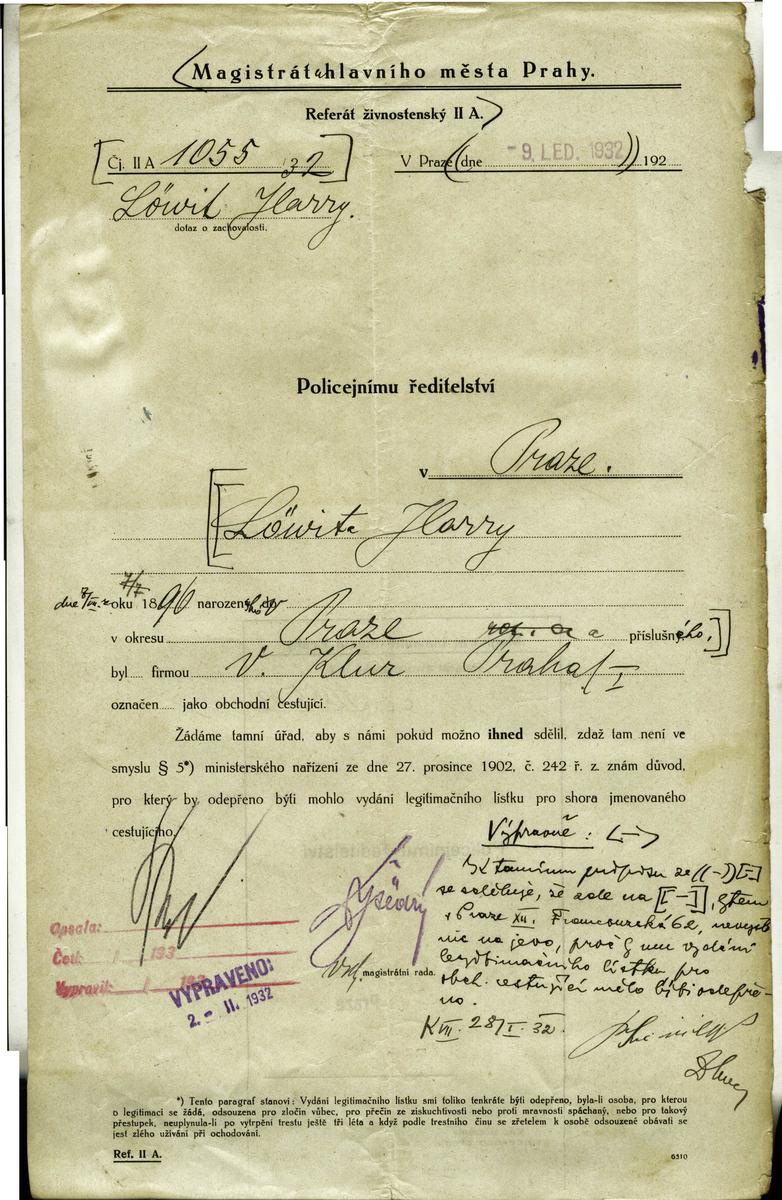 Magistrát hlavního města Prahy.
Referát živnostenský II A.
Čj. II A 1055/32
V Praze dne - 9. LED. 1932 192
Löwit Harry.
dotaz o zachovalosti.
Policejnímu ředitelství
v Praze.
Löwita Harry
7/7
dne roku 1896 narozeného v
v okresu Praze a příslušného,
byl firmou V. Klur Praha I
označen jako obchodní cestující.
Žádáme tamní úřad, aby s námi pokud možno ihned sdělil, zdaž tam není ve
smyslu § 5*) ministerského nařízení ze dne 27. prosince 1902, č. 242 ř. z. znám důvod,
pro který by odepřeno býti mohlo vydání legitimačního lístku pro shora jmenovaného
cestujícího.
Výpravně: (—)
K tamnímu ze ((-)) [-]
se sděluje, že zde na [-],
v Praze XII. Francouzská 62,
nic na jevo, proč mu vydání
legitimačního lístku pro
obch. cestující mělo býti odepře-
no.
K VII. 28/I. 32.
Opsala:
Četl: / 193
Vypravil: / 193
VYPRAVENO:
2. - II. 1932
magistrátní rada.
*) Tento paragraf stanoví: Vydání legitimačního lístku smí toliko tenkráte býti odepřeno, byla-li osoba, pro kterou
o legitimaci se žádá, odsouzena pro zločin vůbec, pro přečin ze ziskuchtivosti nebo proti mravnosti spáchaný, nebo pro takový
přestupek, neuplynula-li po vytrpění trestu ještě tři léta a když podle trestního činu se zřetelem k osobě odsouzené obávati se
jest zlého užívání při ochodování.
Ref. II A.
6310